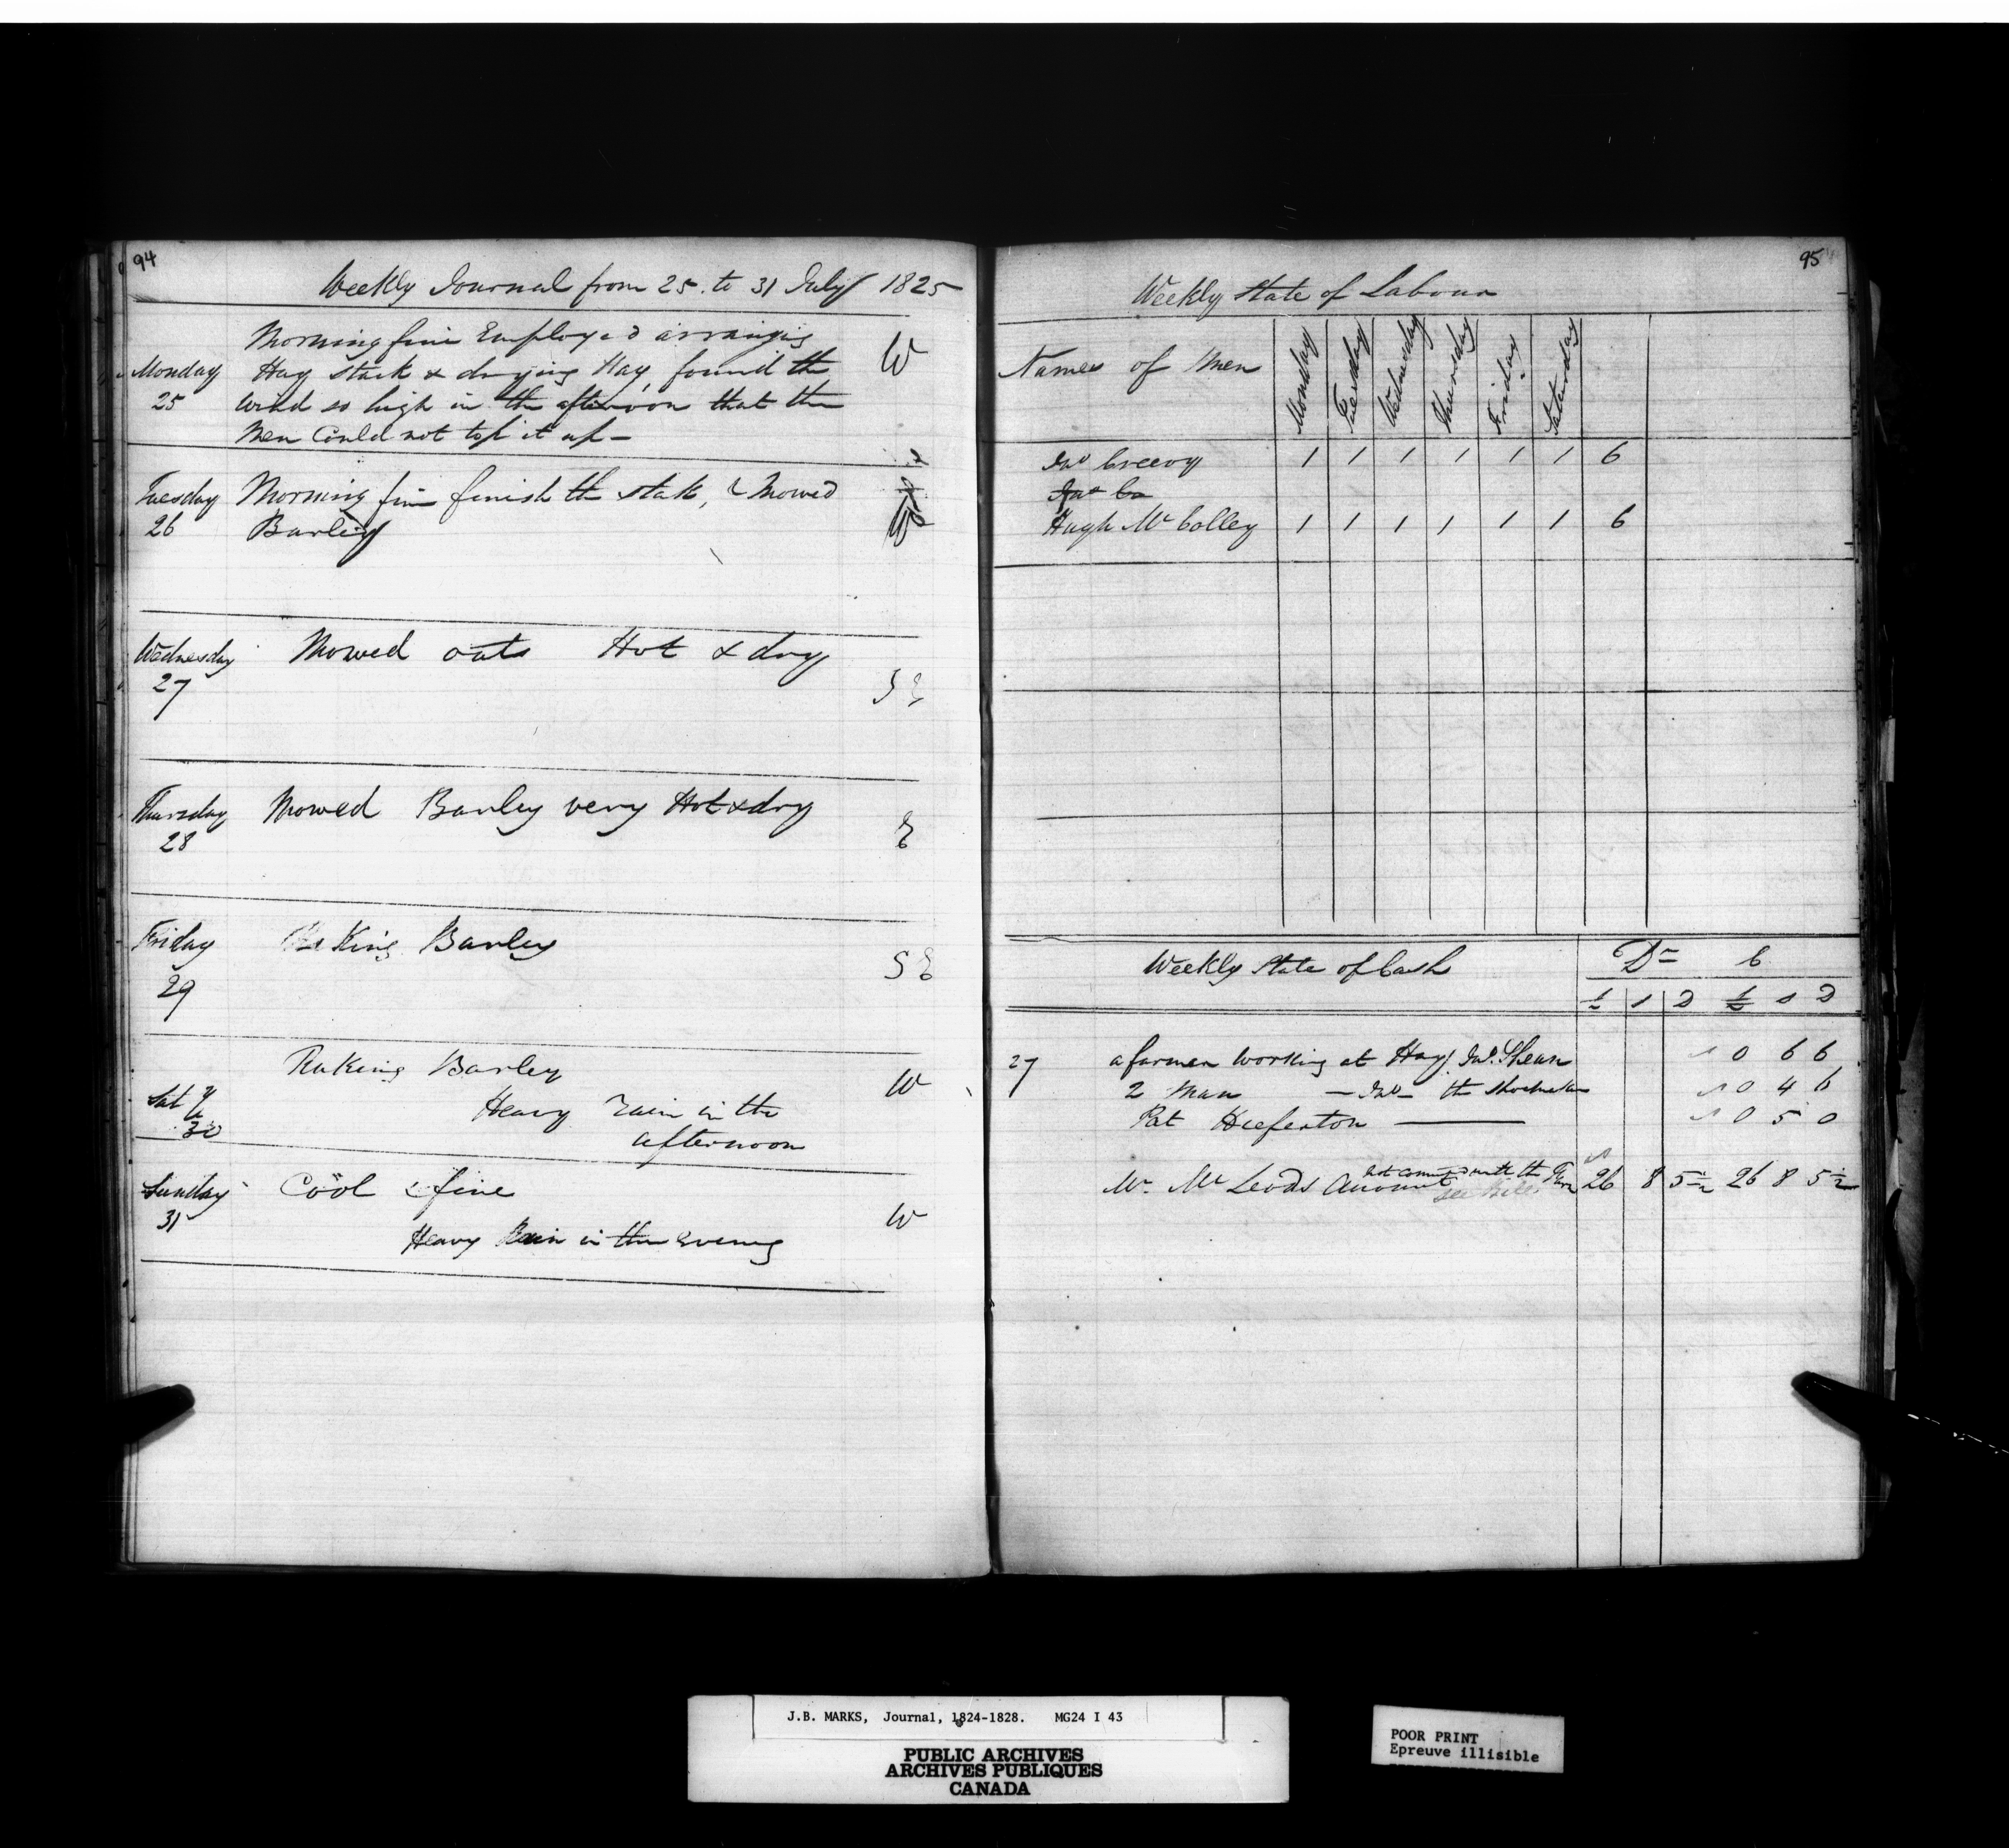 94
Weekly Journal from 25. to 31 July 1825
Monday 25
Morning fine Employed arranging
Hay stack & drying Hay, found the
wind so high in the afternoon that the
Men Could not top it up —
W
Tuesday 26
Morning fine finish the stak, & Mowed
Barley
Wednesday 27
Mowed oats Hot & dry
S E
Thursday 28
Mowed Barley very Hot & dry
E
Friday 29
Raking Barley
S E
Saty 30
Raking Barley
Heavy rain in the
afternoon
W
Sunday 31
Cool & fine
Heavy Rain in the Evening
W
95
Weekly State of Labour
Names of Men Monday Tuesday Wednesday Thursday Friday Saturday
Jno Greevy 1 1 1 1 1 1 6
Hugh Mc Colley 1 1 1 1 1 1 6
Weekly State of Cash Dr C
£ s D £ s D
27 a farmer working at Hay Jno. Shean 0 6 6
2 Man — Jno — the Shoemaker 0 4 6
Pat Heeferton —— 0 5 0
not connected with the Farm
Mr. Mc Leods Account 26 8 5½ 26 8 5½
J.B. MARKS, Journal, 1824-1828. MG24 I 43
PUBLIC ARCHIVES
ARCHIVES PUBLIQUES
CANADA
POOR PRINT
Epreuve illisible